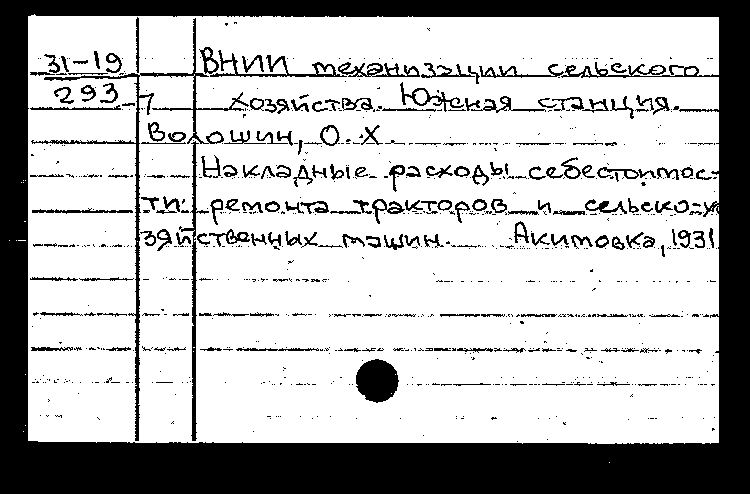 31-19 ВНИИ механизации сельского
293-7 хозяйства. Южная станция.
Волошин, О. Х.
Накладные расходы себестоимос-
ти ремонта тракторов и сельско-хо
зяйственных машин. Акимовка, 1931